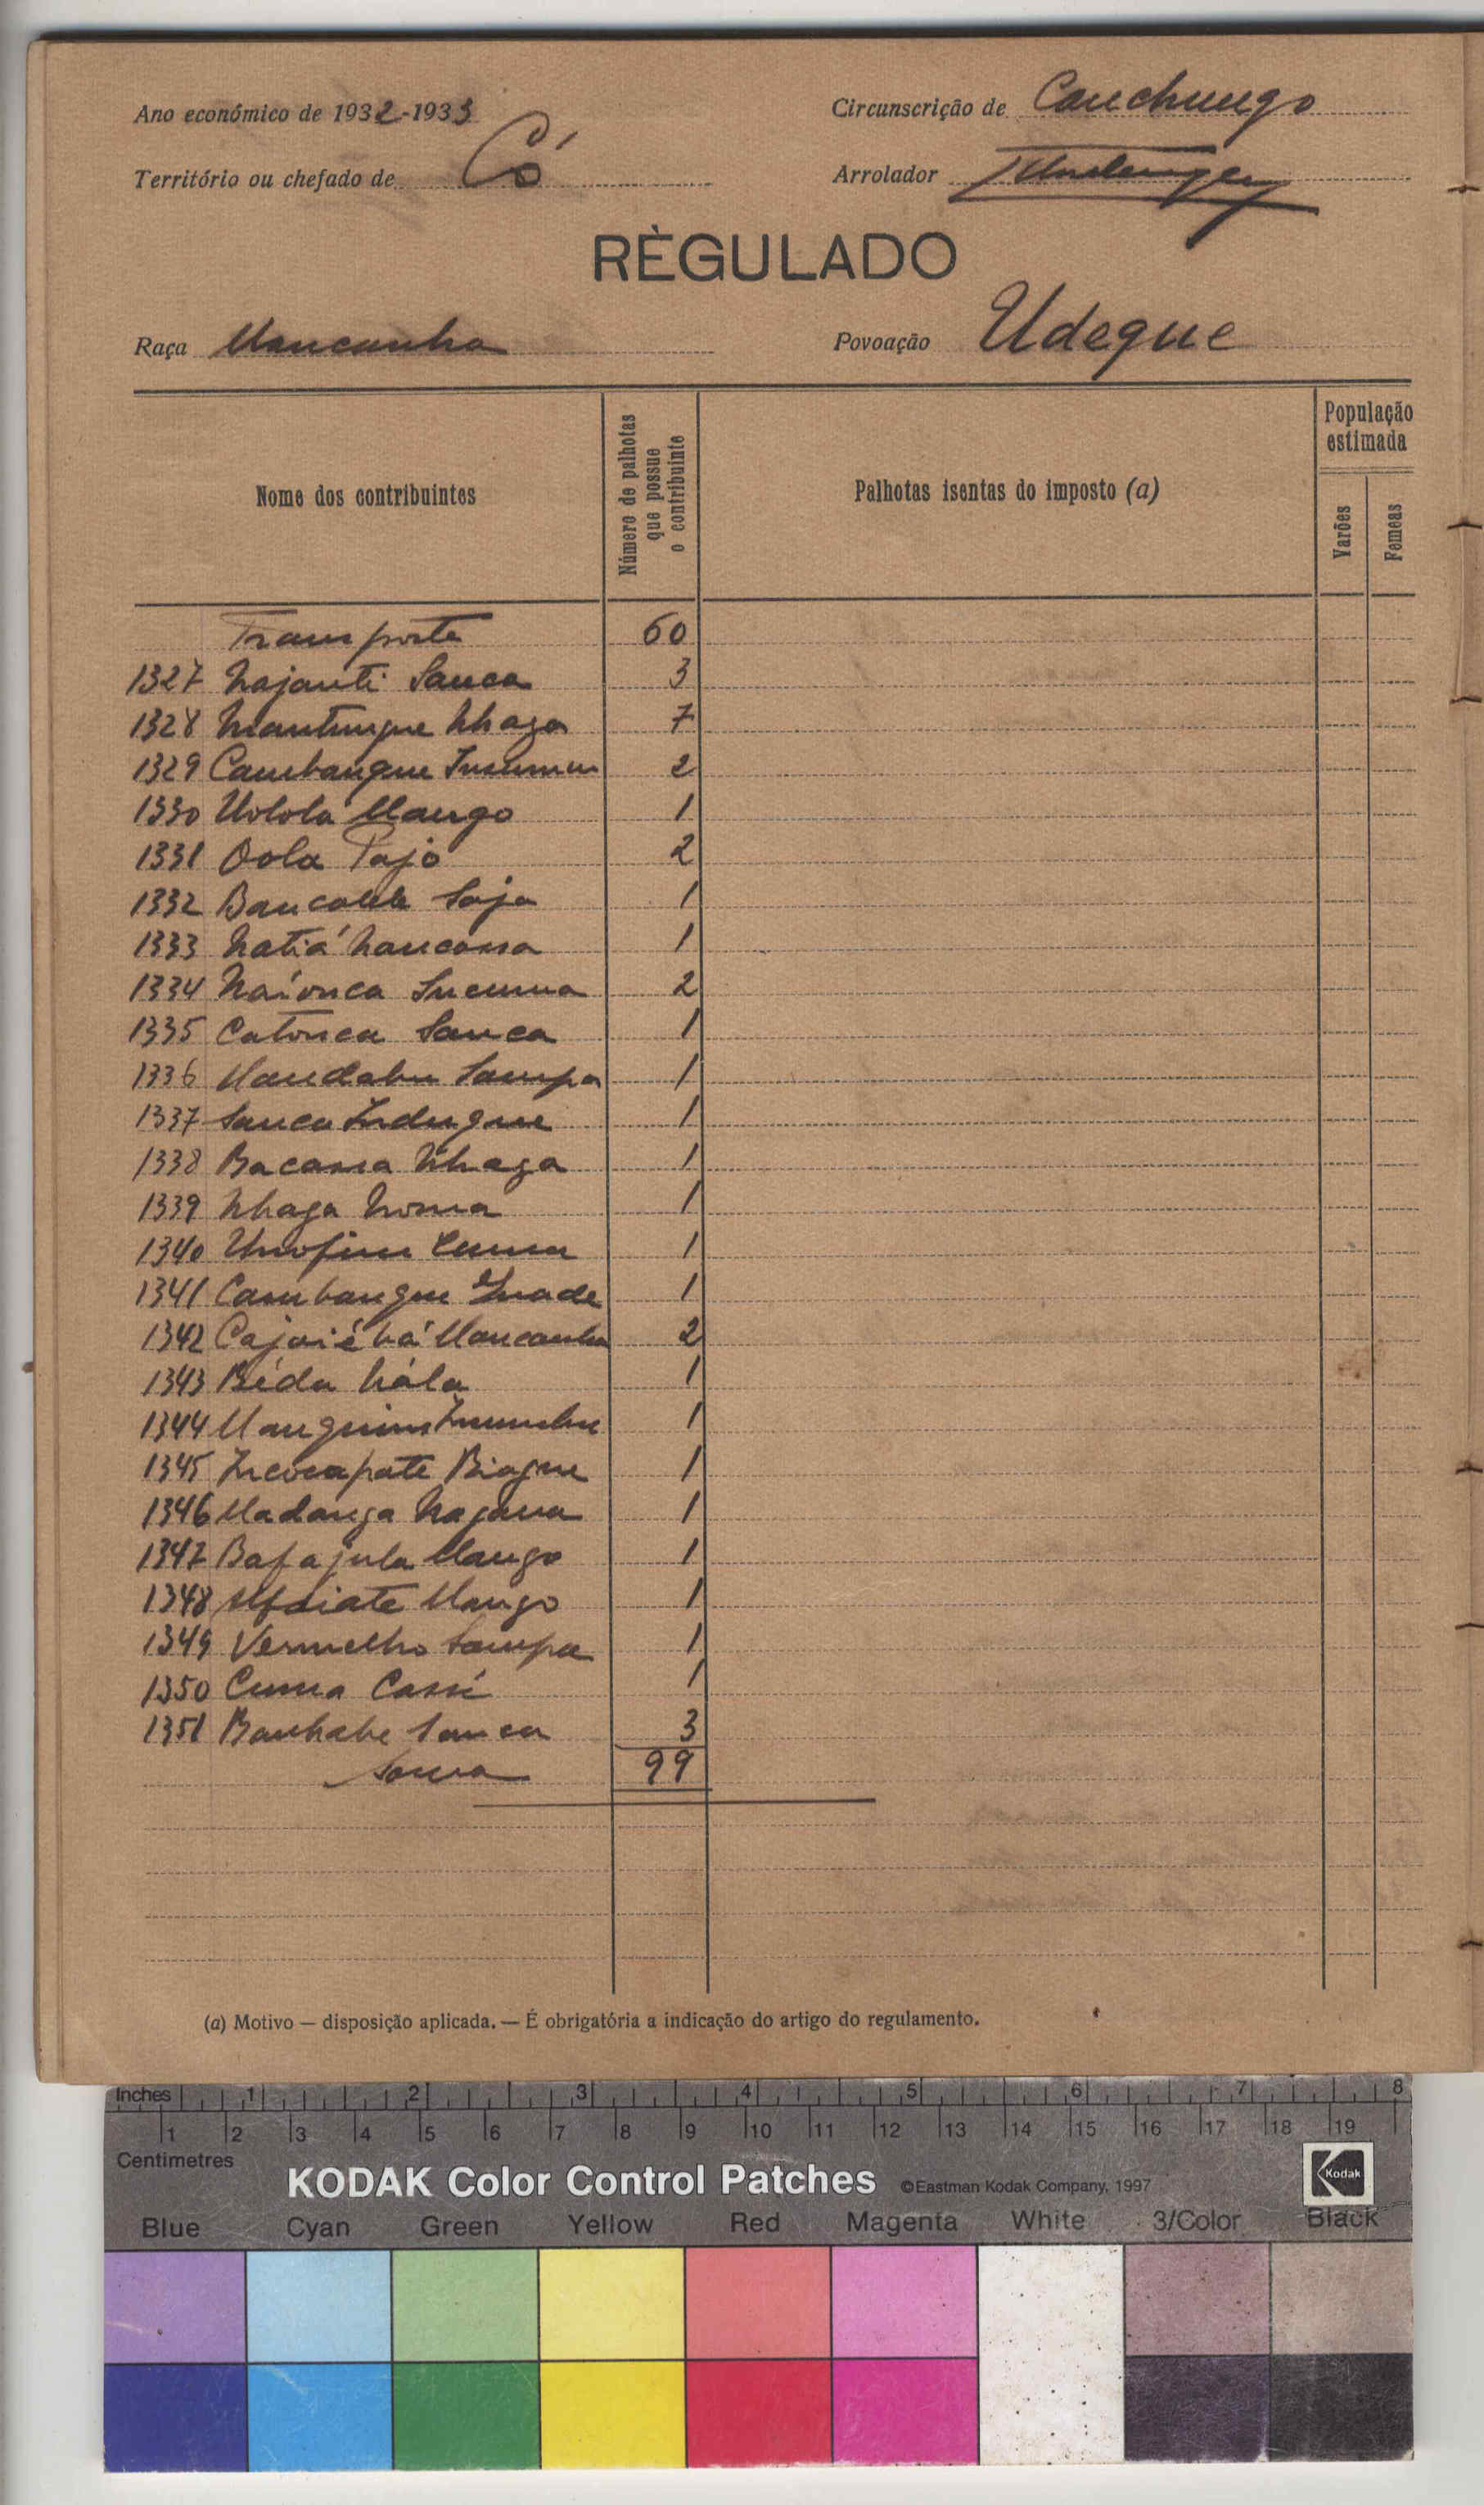 Ano económico de 1932-1933
Circunscrição de Canchungo
Território ou chefado de Có
Arrolador
RÈGULADO
Raça Mancanha
Povoação Udeque
Nome dos contribuintes
Número de palhotas que possue o contribuinte
Palhotas isentas do imposto (a)
População estimada
Varões
Femeas
Transporte 60
1327 Najanti Sanca 3
1328 Nhaga 7
1329 Cambangue 2
1330 Uolola Mango 1
1331 Oola Pajó 2
1332 Saja 1
1333 Natiá Nancassa 1
1334 2
1335 Catonca Sanca 1
1336 Mandabu Sampa 1
1337 Sanca Indugue 1
1338 Bacassa Nhaga 1
1339 Nhaga 1
1340 1
1341 Cambangue 1
1342 Mancanha 2
1343 Béda Nála 1
1344 1
1345 Biague 1
1346 Madanga 1
1347 Bafajula Mango 1
1348 Mango 1
1349 Vermelho Sampa 1
1350 Cuma Cassi 1
1351 Sanca 3
Soma 99
(a) Motivo — disposição aplicada. — É obrigatória a indicação do artigo do regulamento.
Inches 1 2 3 4 5 6 7 8
1 2 3 4 5 6 7 8 9 10 11 12 13 14 15 16 17 18 19
Centimetres
KODAK Color Control Patches ©Eastman Kodak Company, 1997 Kodak
Blue Cyan Green Yellow Red Magenta White 3/Color Black